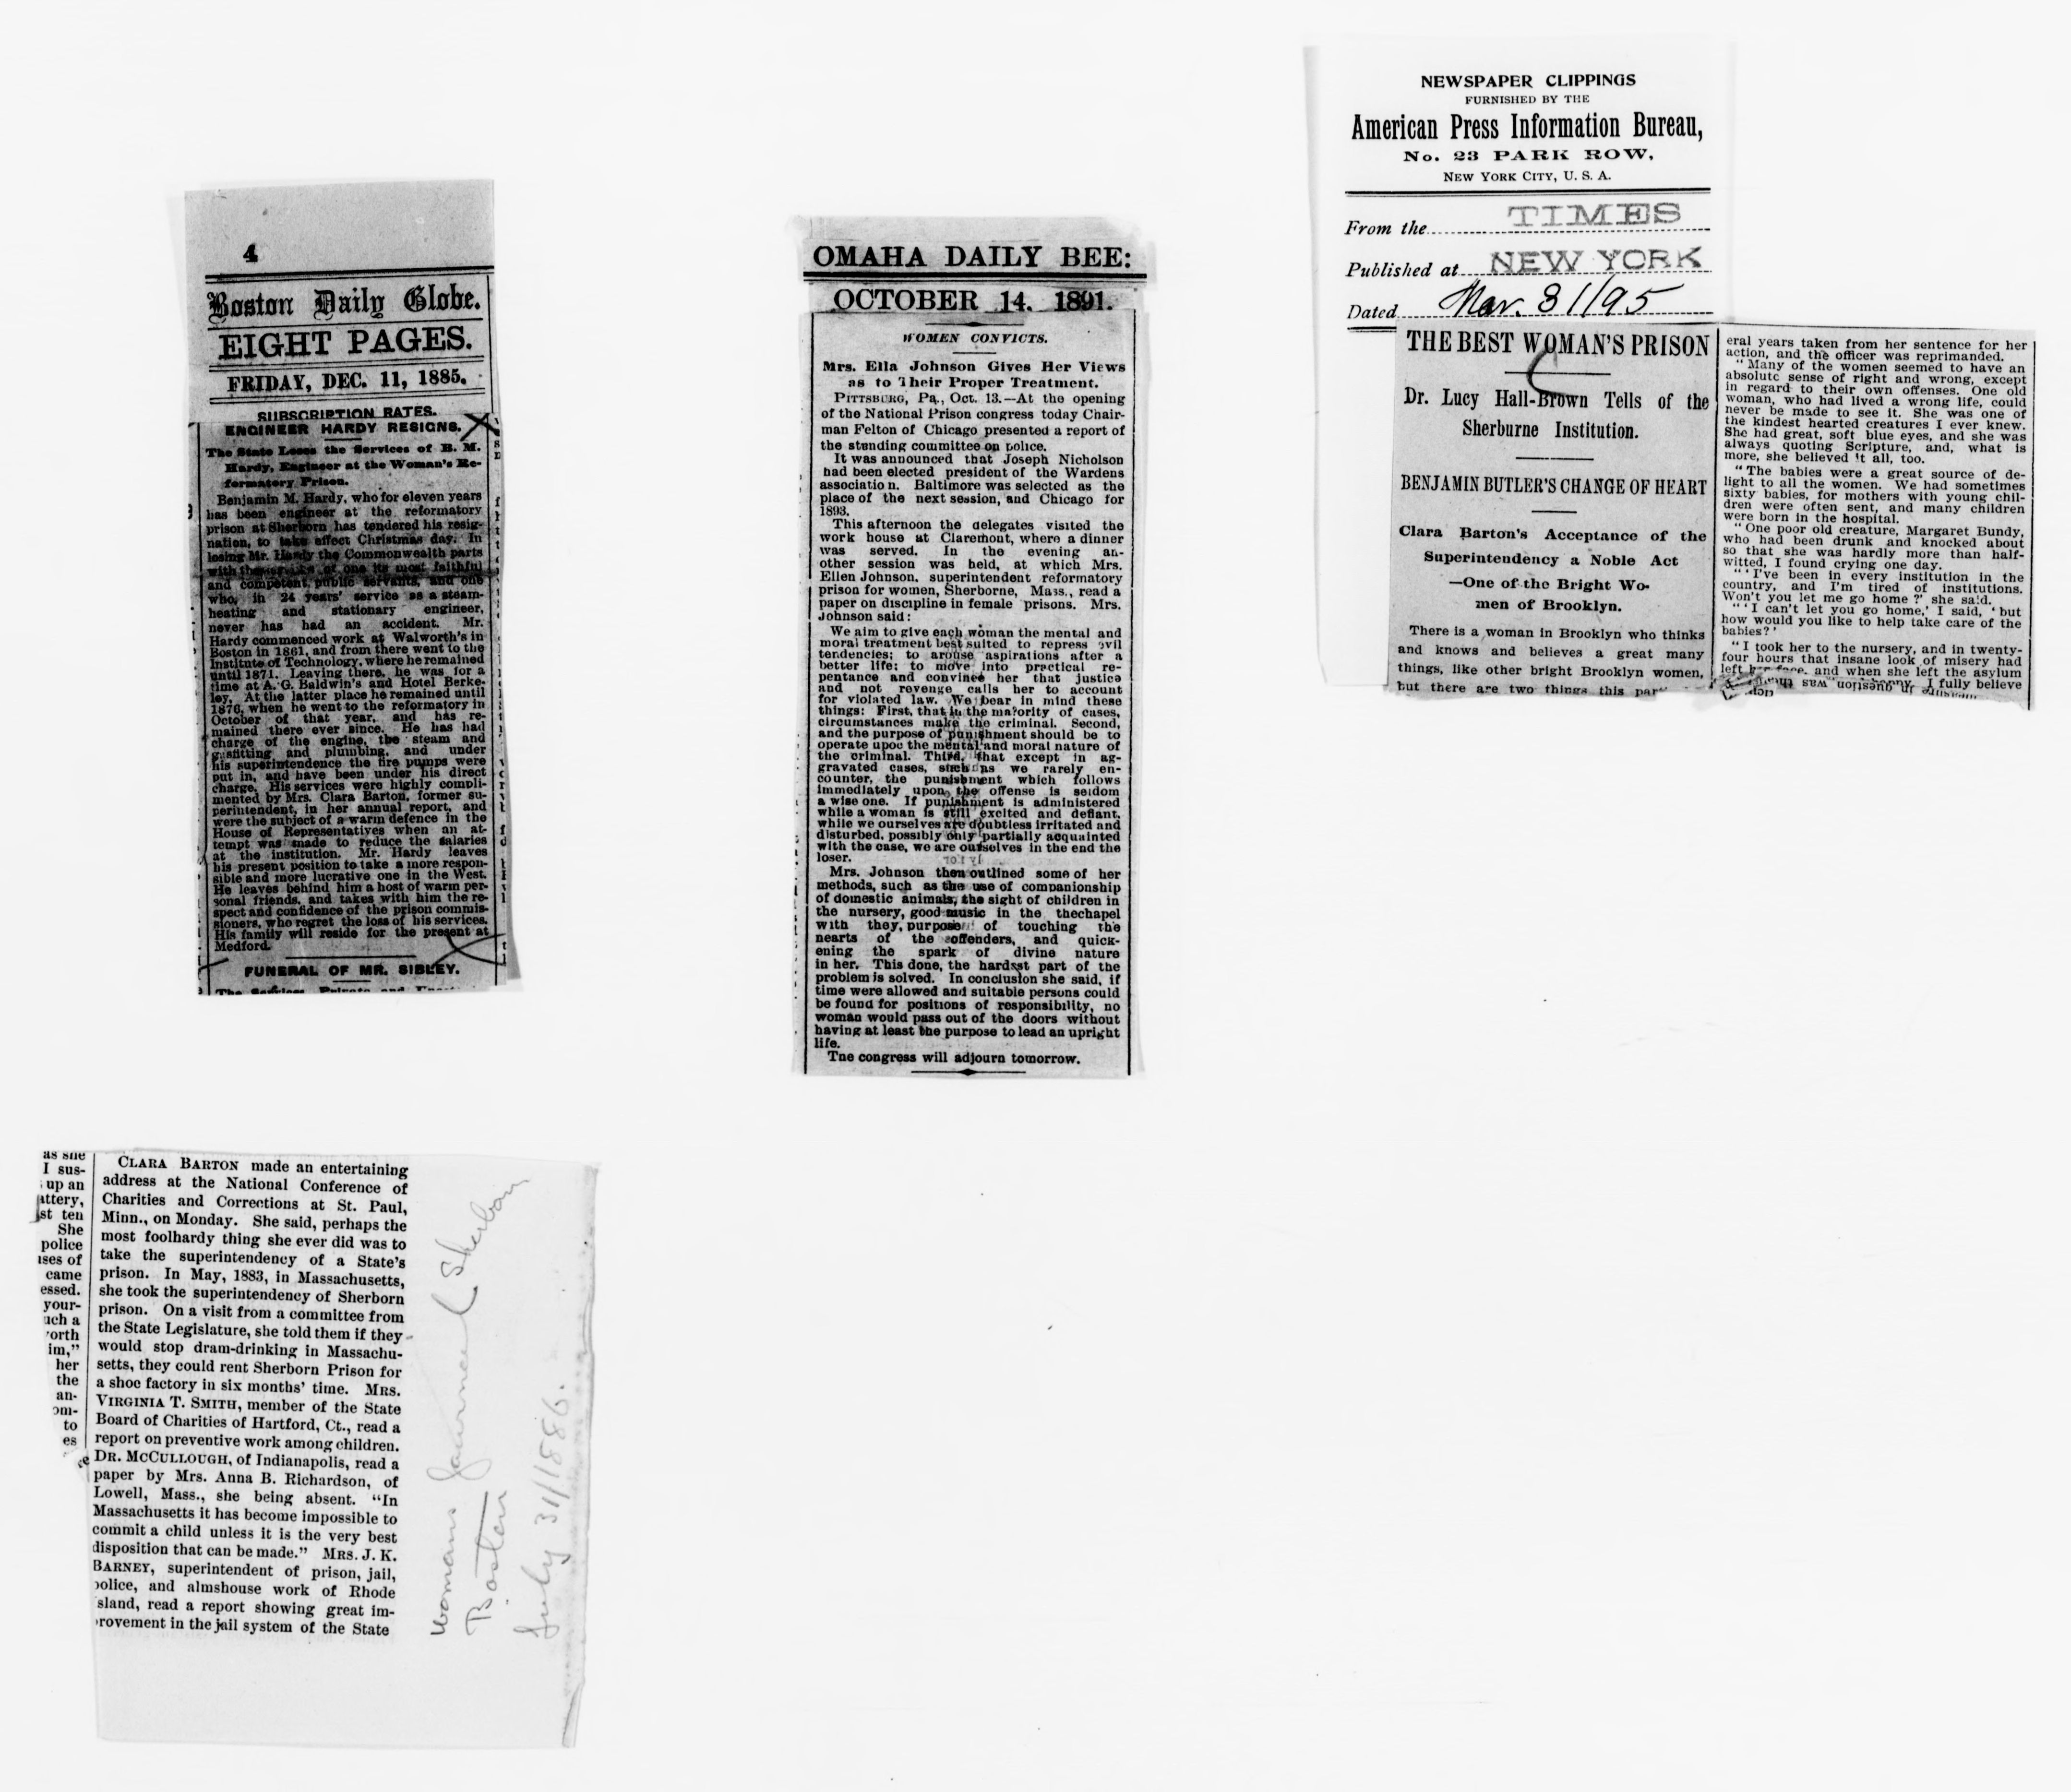 4
Boston Daily Globe.
EIGHT PAGES.
FRIDAY, DEC. 11, 1885.
SUBSCRIPTION RATES.
ENGINEER HARDY RESIGNS.
The State Loses the Services of B. M.
Hardy, Engineer at the Woman's Re-
formatory Prison.
Benjamin M. Hardy, who for eleven years
has been engineer at the reformatory
prison at Sherborn has tendered his resig-
nation, to take effect Christmas day. In
losing Mr. Hardy the Commonwealth parts
with the services of one its most faithful
and competent public servants, and one
who, in 24 years' service as a steam-
heating and stationary engineer,
never has had an accident. Mr.
Hardy commenced work at Walworth's in
Boston in 1861, and from there went to the
Institute of Technology, where he remained
until 1871. Leaving there, he was for a
time at A. G. Baldwin's and Hotel Berke-
ley. At the latter place he remained until
1876, when he went to the reformatory in
October of that year, and has re-
mained there ever since. He has had
charge of the engine, the steam and
gasfitting and plumbing, and under
his superintendence the fire pumps were
put in, and have been under his direct
charge. His services were highly compli-
mented by Mrs. Clara Barton, former su-
perintendent, in her annual report, and
were the subject of a warm defence in the
House of Representatives when an at-
tempt was made to reduce the salaries
at the institution. Mr. Hardy leaves
his present position to take a more respon-
sible and more lucrative one in the West.
He leaves behind him a host of warm per-
sonal friends, and takes with him the re-
spect and confidence of the prison commis-
sioners, who regret the loss of his services.
His family will reside for the present at
Medford.
FUNERAL OF MR. SIBLEY.
OMAHA DAILY BEE:
OCTOBER 14. 1891.
WOMEN CONVICTS.
Mrs. Ella Johnson Gives Her Views
as to Their Proper Treatment.
PITTSBURG, Pa., Oct. 13.—At the opening
of the National Prison congress today Chair-
man Felton of Chicago presented a report of
the standing committee on police.
It was announced that Joseph Nicholson
had been elected president of the Wardens
association. Baltimore was selected as the
place of the next session, and Chicago for
1893.
This afternoon the delegates visited the
work house at Claremont, where a dinner
was served. In the evening an-
other session was held, at which Mrs.
Ellen Johnson, superintendent reformatory
prison for women, Sherborne, Mass., read a
paper on discipline in female prisons. Mrs.
Johnson said:
We aim to give each woman the mental and
moral treatment best suited to repress evil
tendencies; to arouse aspirations after a
better life; to move into practical re-
pentance and convince her that justice
and not revenge calls her to account
for violated law. We bear in mind these
things: First, that in the majority of cases,
circumstances make the criminal. Second,
and the purpose of punishment should be to
operate upoc the mental and moral nature of
the criminal. Third, that except in ag-
gravated cases, such as we rarely en-
counter, the punishment which follows
immediately upon the offense is seldom
a wise one. If punishment is administered
while a woman is still excited and defiant,
while we ourselves are doubtless irritated and
disturbed, possibly only partially acquainted
with the case, we are ourselves in the end the
loser.
Mrs. Johnson then outlined some of her
methods, such as the use of companionship
of domestic animals, the sight of children in
the nursery, good music in the thechapel
with they, purpose of touching the
hearts of the offenders, and quick-
ening the spark of divine nature
in her. This done, the hardest part of the
problem is solved. In conclusion she said, if
time were allowed and suitable persons could
be found for positions of responsibility, no
woman would pass out of the doors without
having at least the purpose to lead an upright
life.
Tne congress will adjourn tomorrow.
NEWSPAPER CLIPPINGS
FURNISHED BY THE
American Press Information Bureau,
No. 23 PARK ROW,
NEW YORK CITY, U. S. A.
From the TIMES
Published at NEW YORK
Dated Mar. 31/95
THE BEST WOMAN'S PRISON
Dr. Lucy Hall-Brown Tells of the
Sherburne Institution.
BENJAMIN BUTLER'S CHANGE OF HEART
Clara Barton's Acceptance of the
Superintendency a Noble Act
—One of the Bright Wo-
men of Brooklyn.
There is a woman in Brooklyn who thinks
and knows and believes a great many
things, like other bright Brooklyn women,
but there are two things this
eral years taken from her sentence for her
action, and the officer was reprimanded.
"Many of the women seemed to have an
absolute sense of right and wrong, except
in regard to their own offenses. One old
woman, who had lived a wrong life, could
never be made to see it. She was one of
the kindest hearted creatures I ever knew.
She had great, soft blue eyes, and she was
always quoting Scripture, and, what is
more, she believed it all, too.
"The babies were a great source of de-
light to all the women. We had sometimes
sixty babies, for mothers with young chil-
dren were often sent, and many children
were born in the hospital.
"One poor old creature, Margaret Bundy,
who had been drunk and knocked about
so that she was hardly more than half-
witted, I found crying one day.
"'I've been in every institution in the
country, and I'm tired of institutions.
Won't you let me go home?' she said.
"'I can't let you go home,' I said, 'but
how would you like to help take care of the
babies?'
"I took her to the nursery, and in twenty-
four hours that insane look of misery had
left her face, and when she left the asylum
I fully believe
as she
I sus-
up an
attery,
st ten
She
police
ises of
came
essed.
your-
uch a
orth
im,"
her
the
an-
om-
to
es
CLARA BARTON made an entertaining
address at the National Conference of
Charities and Corrections at St. Paul,
Minn., on Monday. She said, perhaps the
most foolhardy thing she ever did was to
take the superintendency of a State's
prison. In May, 1883, in Massachusetts,
she took the superintendency of Sherborn
prison. On a visit from a committee from
the State Legislature, she told them if they
would stop dram-drinking in Massachu-
setts, they could rent Sherborn Prison for
a shoe factory in six months' time. MRS.
VIRGINIA T. SMITH, member of the State
Board of Charities of Hartford, Ct., read a
report on preventive work among children.
DR. MCCULLOUGH, of Indianapolis, read a
paper by Mrs. Anna B. Richardson, of
Lowell, Mass., she being absent. "In
Massachusetts it has become impossible to
commit a child unless it is the very best
disposition that can be made." MRS. J. K.
BARNEY, superintendent of prison, jail,
police, and almshouse work of Rhode
sland, read a report showing great im-
rovement in the jail system of the State
Womans Journal Sherborn
Boston
July 31/1886.